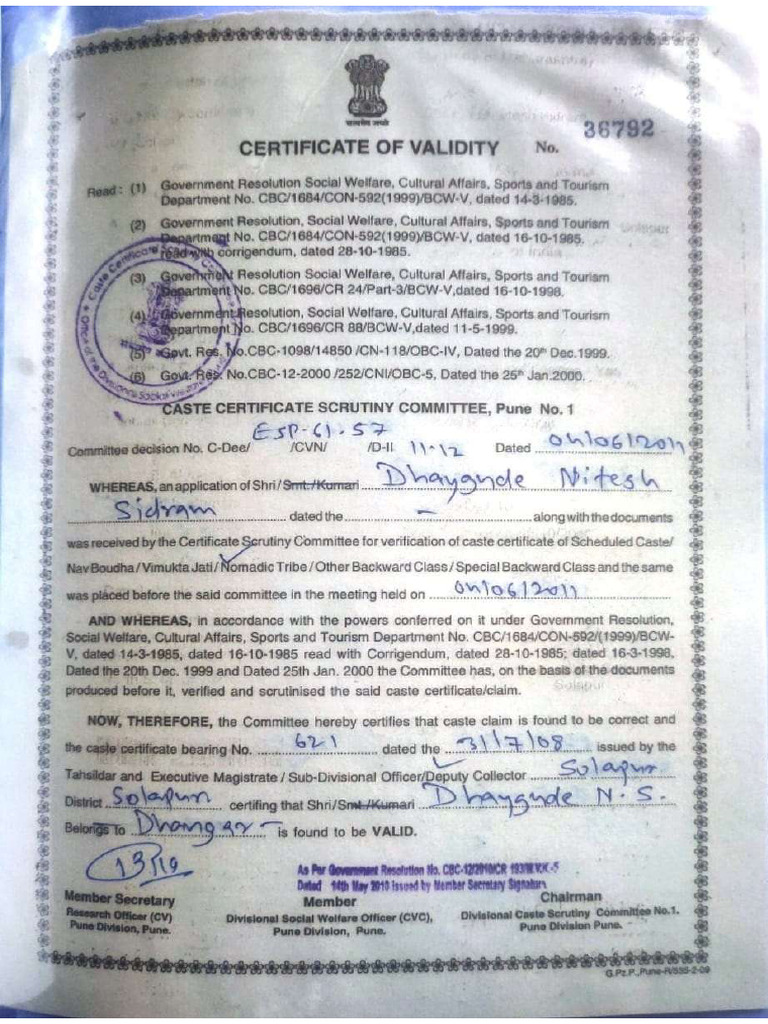 CERTIFICATE OF VALIDITY No. 36792
Read : (1) Government Resolution Social Welfare, Cultural Affairs, Sports and Tourism
Department No. CBC/1684/CON-592(1999)/BCW-V, dated 14-3-1985.
(2) Government Resolution, Social Welfare, Cultural Affairs, Sports and Tourism
Department No. CBC/1684/CON-592(1999)/BCW-V, dated 16-10-1985.
read with corrigendum, dated 28-10-1985.
(3) Government Resolution Social Welfare, Cultural Affairs, Sports and Tourism
Department No. CBC/1696/CR 24/Part-3/BCW-V,dated 16-10-1998.
(4) Government Resolution, Social Welfare, Cultural Affairs, Sports and Tourism
Department No. CBC/1696/CR 88/BCW-V,dated 11-5-1999.
(5) Govt. Res. No.CBC-1098/14850 /CN-118/OBC-IV, Dated the 20th Dec.1999.
(6) Govt. Res. No.CBC-12-2000 /252/CNI/OBC-5, Dated the 25th Jan.2000.
CASTE CERTIFICATE SCRUTINY COMMITTEE, Pune No. 1
Committee decision No. C-Dee/ ESP-61-57 /CVN/ /D-II 11-12 Dated 04/06/2011
WHEREAS, an application of Shri/Smt./Kumari Dhaygude Nitesh
Sidram dated the – along with the documents
was received by the Certificate Scrutiny Committee for verification of caste certificate of Scheduled Caste/
Nav Boudha/ Vimukta Jati/ Nomadic Tribe / Other Backward Class / Special Backward Class and the same
was placed before the said committee in the meeting held on 04/06/2011
AND WHEREAS, in accordance with the powers conferred on it under Government Resolution,
Social Welfare, Cultural Affairs, Sports and Tourism Department No. CBC/1684/CON-592/(1999)/BCW-
V, dated 14-3-1985, dated 16-10-1985 read with Corrigendum, dated 28-10-1985; dated 16-3-1998,
Dated the 20th Dec. 1999 and Dated 25th Jan. 2000 the Committee has, on the basis of the documents
produced before it, verified and scrutinised the said caste certificate/claim.
NOW, THEREFORE, the Committee hereby certifies that caste claim is found to be correct and
the caste certificate bearing No. 621 dated the 31/7/08 issued by the
Tahsildar and Executive Magistrate / Sub-Divisional Officer/Deputy Collector Solapur
District Solapur certifing that Shri/Smt./Kumari Dhaygude N.S.
Belongs to Dhangar – is found to be VALID.
As Per Government Resolution No. CBC-12/2010/CR
Dated 14th May 2010 issued by Member Secretary Signature
Member Secretary
Research Officer (CV)
Pune Division, Pune.
Member
Divisional Social Welfare Officer (CVC),
Pune Division, Pune.
Chairman
Divisional Caste Scrutiny Committee No.1.
Pune Division Pune.